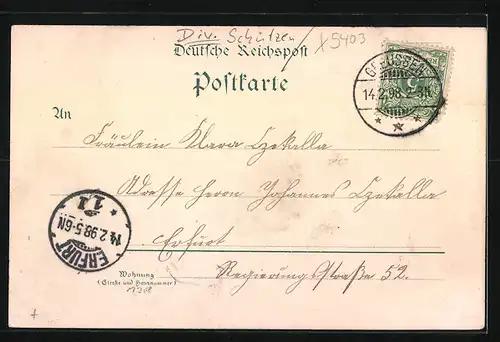 Div. Schützen
X5403
Deutsche Reichspost
Postkarte
GREUSSEN
14.2.98.2-3N
An
Fräulein Klara Czekalla
Adresse Herrn Johannes Czekalla
Erfurt
Regierungsstraße 52.
ERFURT
14.2.98.5-6N
* 1.1
Wohnung
(Straße und Hausnummer)